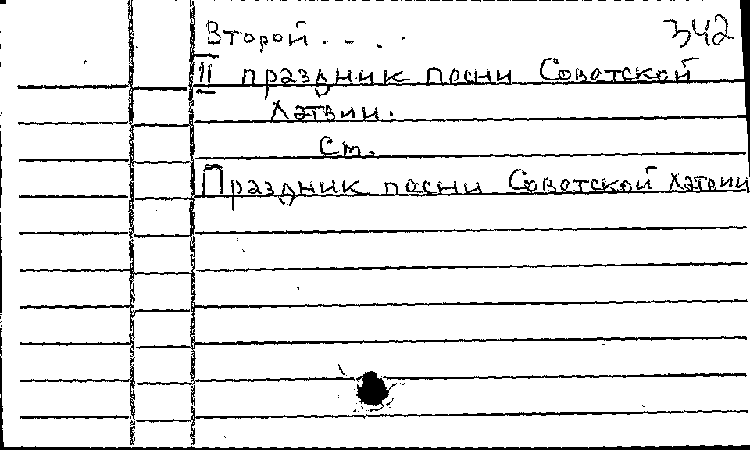 Второй . - . .
342
II праздник песни Советской
Латвии.
Ст.
Праздник песни Советской Латвии